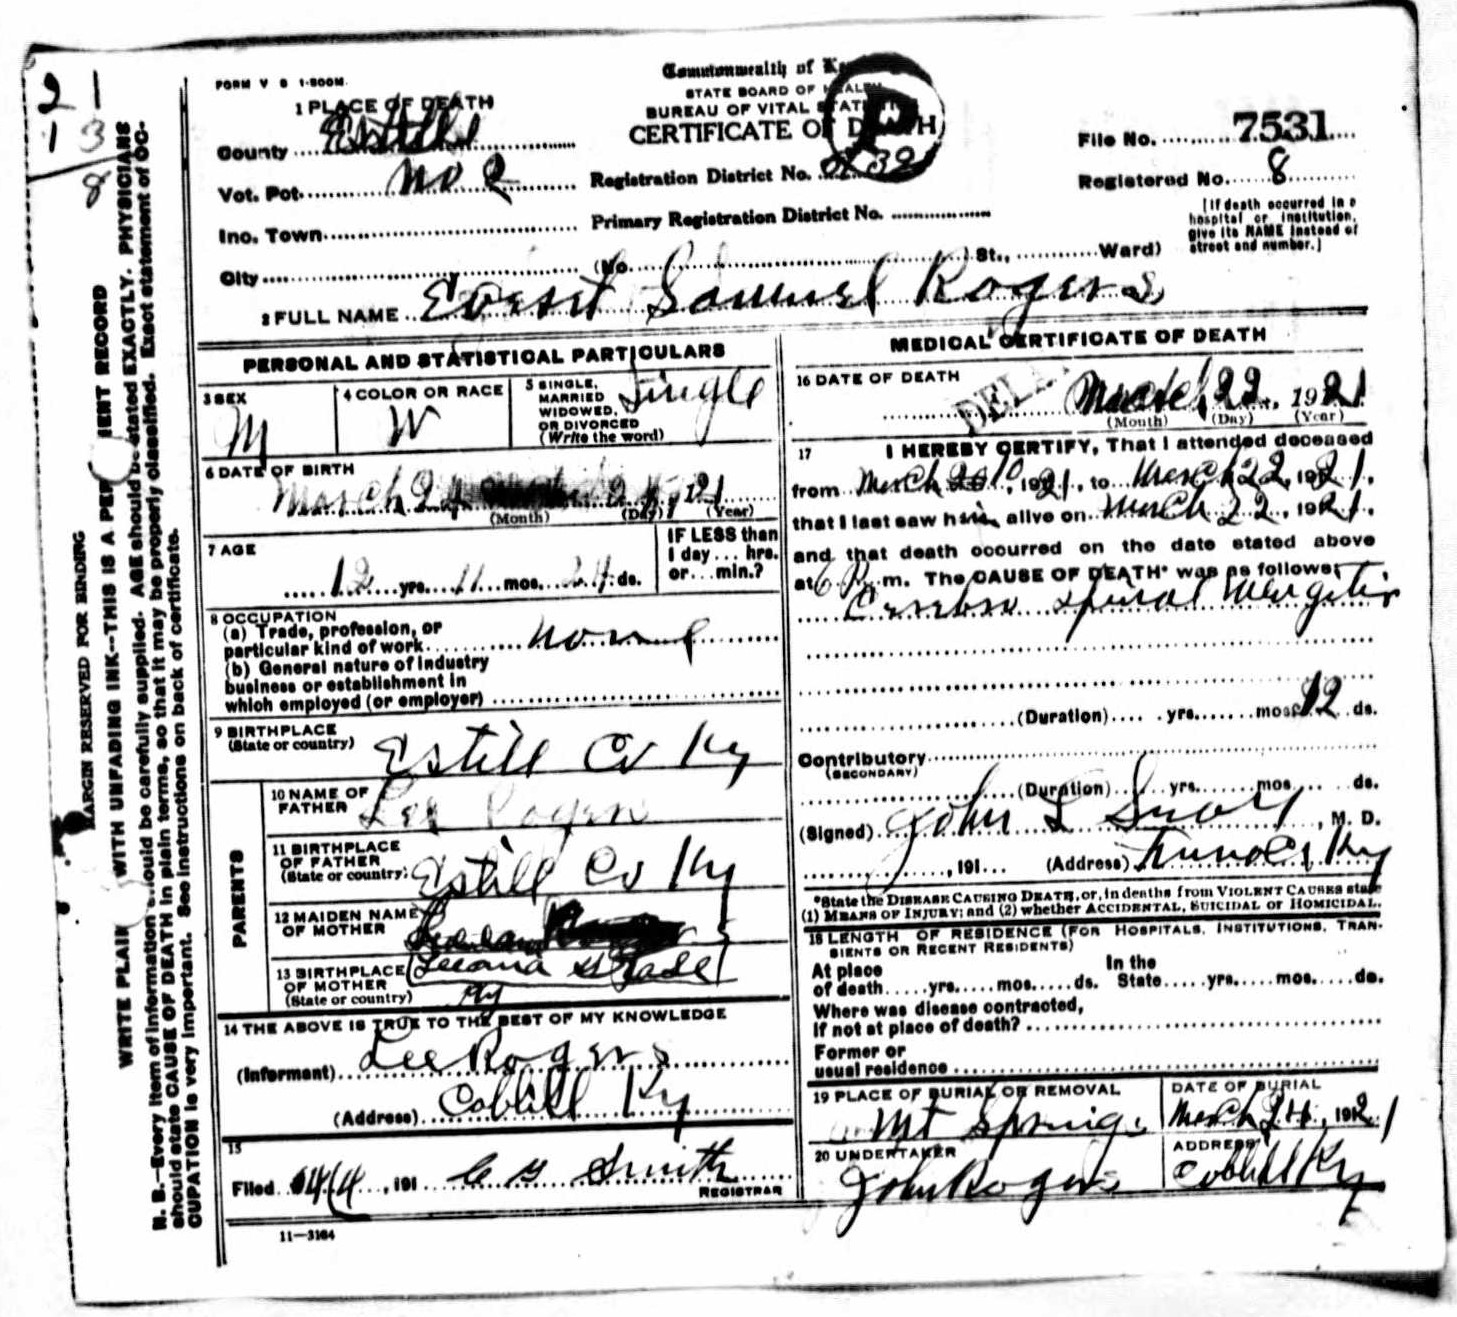 21
13
8
MARGIN RESERVED FOR BINDING
WRITE PLAIN WITH UNFADING INK--THIS IS A PER ENT RECORD
N. B.--Every item of information should be carefully supplied. AGE should be stated EXACTLY. PHYSICIANS
should state CAUSE OF DEATH in plain terms, so that it may be properly classified. Exact statement of OC-
CUPATION is very important. See instructions on back of certificate.
FORM V S 1-500M.
Commonwealth of K
STATE BOARD OF HEALTH
BUREAU OF VITAL STATI
CERTIFICATE OF DEATH
P
1 PLACE OF DEATH
County Estill
Vot. Pct. No 2
Inc. Town
City (No. St., Ward)
Registration District No.
Primary Registration District No.
File No. 7531
Registered No. 8
[If death occurred in a
hospital or institution,
give its NAME instead of
street and number.]
2 FULL NAME Samuel Rogers
PERSONAL AND STATISTICAL PARTICULARS
3 SEX
M
4 COLOR OR RACE
W
5 SINGLE,
MARRIED
WIDOWED,
OR DIVORCED
(Write the word)
Single
6 DATE OF BIRTH
March 24
(Month) (Day) (Year)
7 AGE
12 yrs. 11 mos. 24 ds.
IF LESS than
1 day... hrs.
or... min.?
8 OCCUPATION
(a) Trade, profession, or
particular kind of work None
(b) General nature of industry
business or establishment in
which employed (or employer)
9 BIRTHPLACE
(State or country) Estill Co Ky
PARENTS
10 NAME OF
FATHER Lee Rogers
11 BIRTHPLACE
OF FATHER
(State or country) Estill Co Ky
12 MAIDEN NAME
OF MOTHER
13 BIRTHPLACE
OF MOTHER
(State or country) Ky
14 THE ABOVE IS TRUE TO THE BEST OF MY KNOWLEDGE
(Informant) Lee Rogers
(Address) Cobhill Ky
15
Filed 4/4, 191 C G Smith
REGISTRAR
11-3184
MEDICAL CERTIFICATE OF DEATH
16 DATE OF DEATH
March 22, 1921
(Month) (Day) (Year)
17 I HEREBY CERTIFY, That I attended deceased
from March 10, 1921, to March 22, 1921,
that I last saw him alive on March 22, 1921,
and that death occurred on the date stated above
at 6 P m. The CAUSE OF DEATH* was as follows:
Cerebro Spinal Mengitis
(Duration) yrs. mos. 12 ds.
Contributory
(SECONDARY)
(Duration) yrs. mos. ds.
(Signed) John L , M. D.
, 191 (Address) Ky
*State the DISEASE CAUSING DEATH, or, in deaths from VIOLENT CAUSES state
(1) MEANS OF INJURY; and (2) whether ACCIDENTAL, SUICIDAL or HOMICIDAL.
18 LENGTH OF RESIDENCE (FOR HOSPITALS, INSTITUTIONS, TRAN-
SIENTS OR RECENT RESIDENTS)
At place
of death yrs. mos. ds.
In the
State yrs. mos. ds.
Where was disease contracted,
if not at place of death?
Former or
usual residence
19 PLACE OF BURIAL OR REMOVAL
Mt Springs
DATE OF BURIAL
March 24, 1921
20 UNDERTAKER
John Rogers
ADDRESS
Cobhill Ky